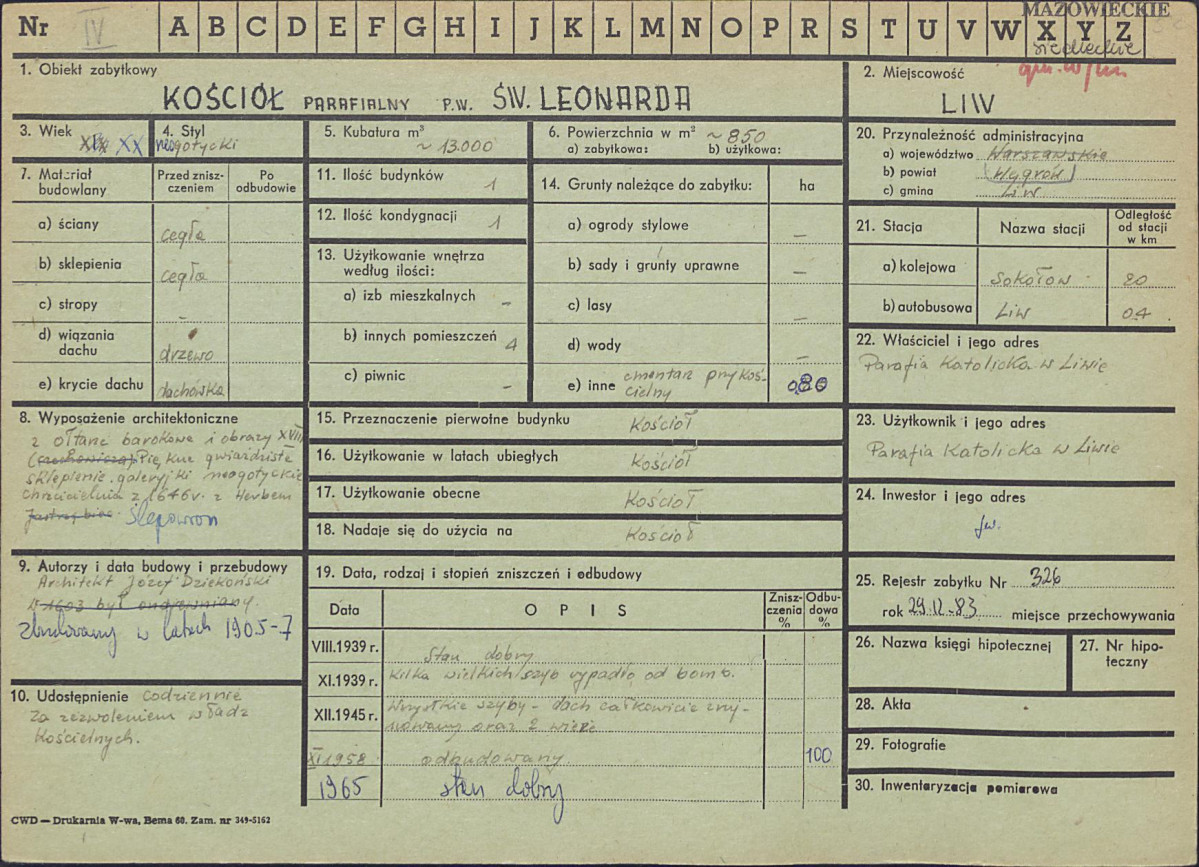 Nr IV A B C D E F G H I J K L M N O P R S T U V W X Y Z
MAZOWIECKIE
siedleckie
gm. w/m
1. Obiekt zabytkowy
KOŚCIÓŁ PARAFIALNY P.W. ŚW. LEONARDA
2. Miejscowość
LIW
3. Wiek
XIX XX
4. Styl
neogotycki
5. Kubatura m³
~ 13.000
6. Powierzchnia w m² ~ 850
a) zabytkowa: b) użytkowa:
7. Materiał budowlany
Przed zniszczeniem
Po odbudowie
a) ściany cegła
b) sklepienia cegła
c) stropy –
d) wiązania dachu drzewo
e) krycie dachu dachówka
8. Wyposażenie architektoniczne
2 ołtarze barokowe i obrazy XVIII
(Czechowicza). Piękne gwiaździste
sklepienie. galeryjki neogotyckie
chrzcielnia z 1646 r. z herbem
Jastrzębiec. Ślepowron
9. Autorzy i data budowy i przebudowy
Architekt Józef Dziekoński
W 1603 był ongrewniany.
Zbudowany w latach 1905-7
10. Udostępnienie codziennie
za zezwoleniem władz
kościelnych.
11. Ilość budynków 1
12. Ilość kondygnacji 1
13. Użytkowanie wnętrza według ilości:
a) izb mieszkalnych –
b) innych pomieszczeń 4
c) piwnic –
14. Grunty należące do zabytku: ha
a) ogrody stylowe –
b) sady i grunty uprawne –
c) lasy
d) wody –
e) inne cmentarz przykościelny 0,80
15. Przeznaczenie pierwotne budynku Kościół
16. Użytkowanie w latach ubiegłych Kościół
17. Użytkowanie obecne Kościół
18. Nadaje się do użycia na Kościół
19. Data, rodzaj i stopień zniszczeń i odbudowy
Data OPIS Zniszczenia % Odbudowa %
VIII.1939 r. Stan dobry
XI.1939 r. Kilka wielkich szyb wypadło od bomb.
XII.1945 r. Wszystkie szyby – dach całkowicie zrujnowany oraz 2 wieże
XI 1958 odbudowany. 100
1965 stan dobry
20. Przynależność administracyjna
a) województwo Warszawskie
b) powiat Węgrów
c) gmina Liw
21. Stacja Nazwa stacji Odległość od stacji w km
a) kolejowa Sokołów 20
b) autobusowa Liw 0.4
22. Właściciel i jego adres
Parafia Katolicka w Liwie
23. Użytkownik i jego adres
Parafia Katolicka w Liwie
24. Inwestor i jego adres
jw.
25. Rejestr zabytku Nr 326
rok 29.12.83 miejsce przechowywania
26. Nazwa księgi hipotecznej
27. Nr hipoteczny
28. Akta
29. Fotografie
30. Inwentaryzacja pomiarowa
CWD — Drukarnia W-wa, Bema 60. Zam. nr 349-5162